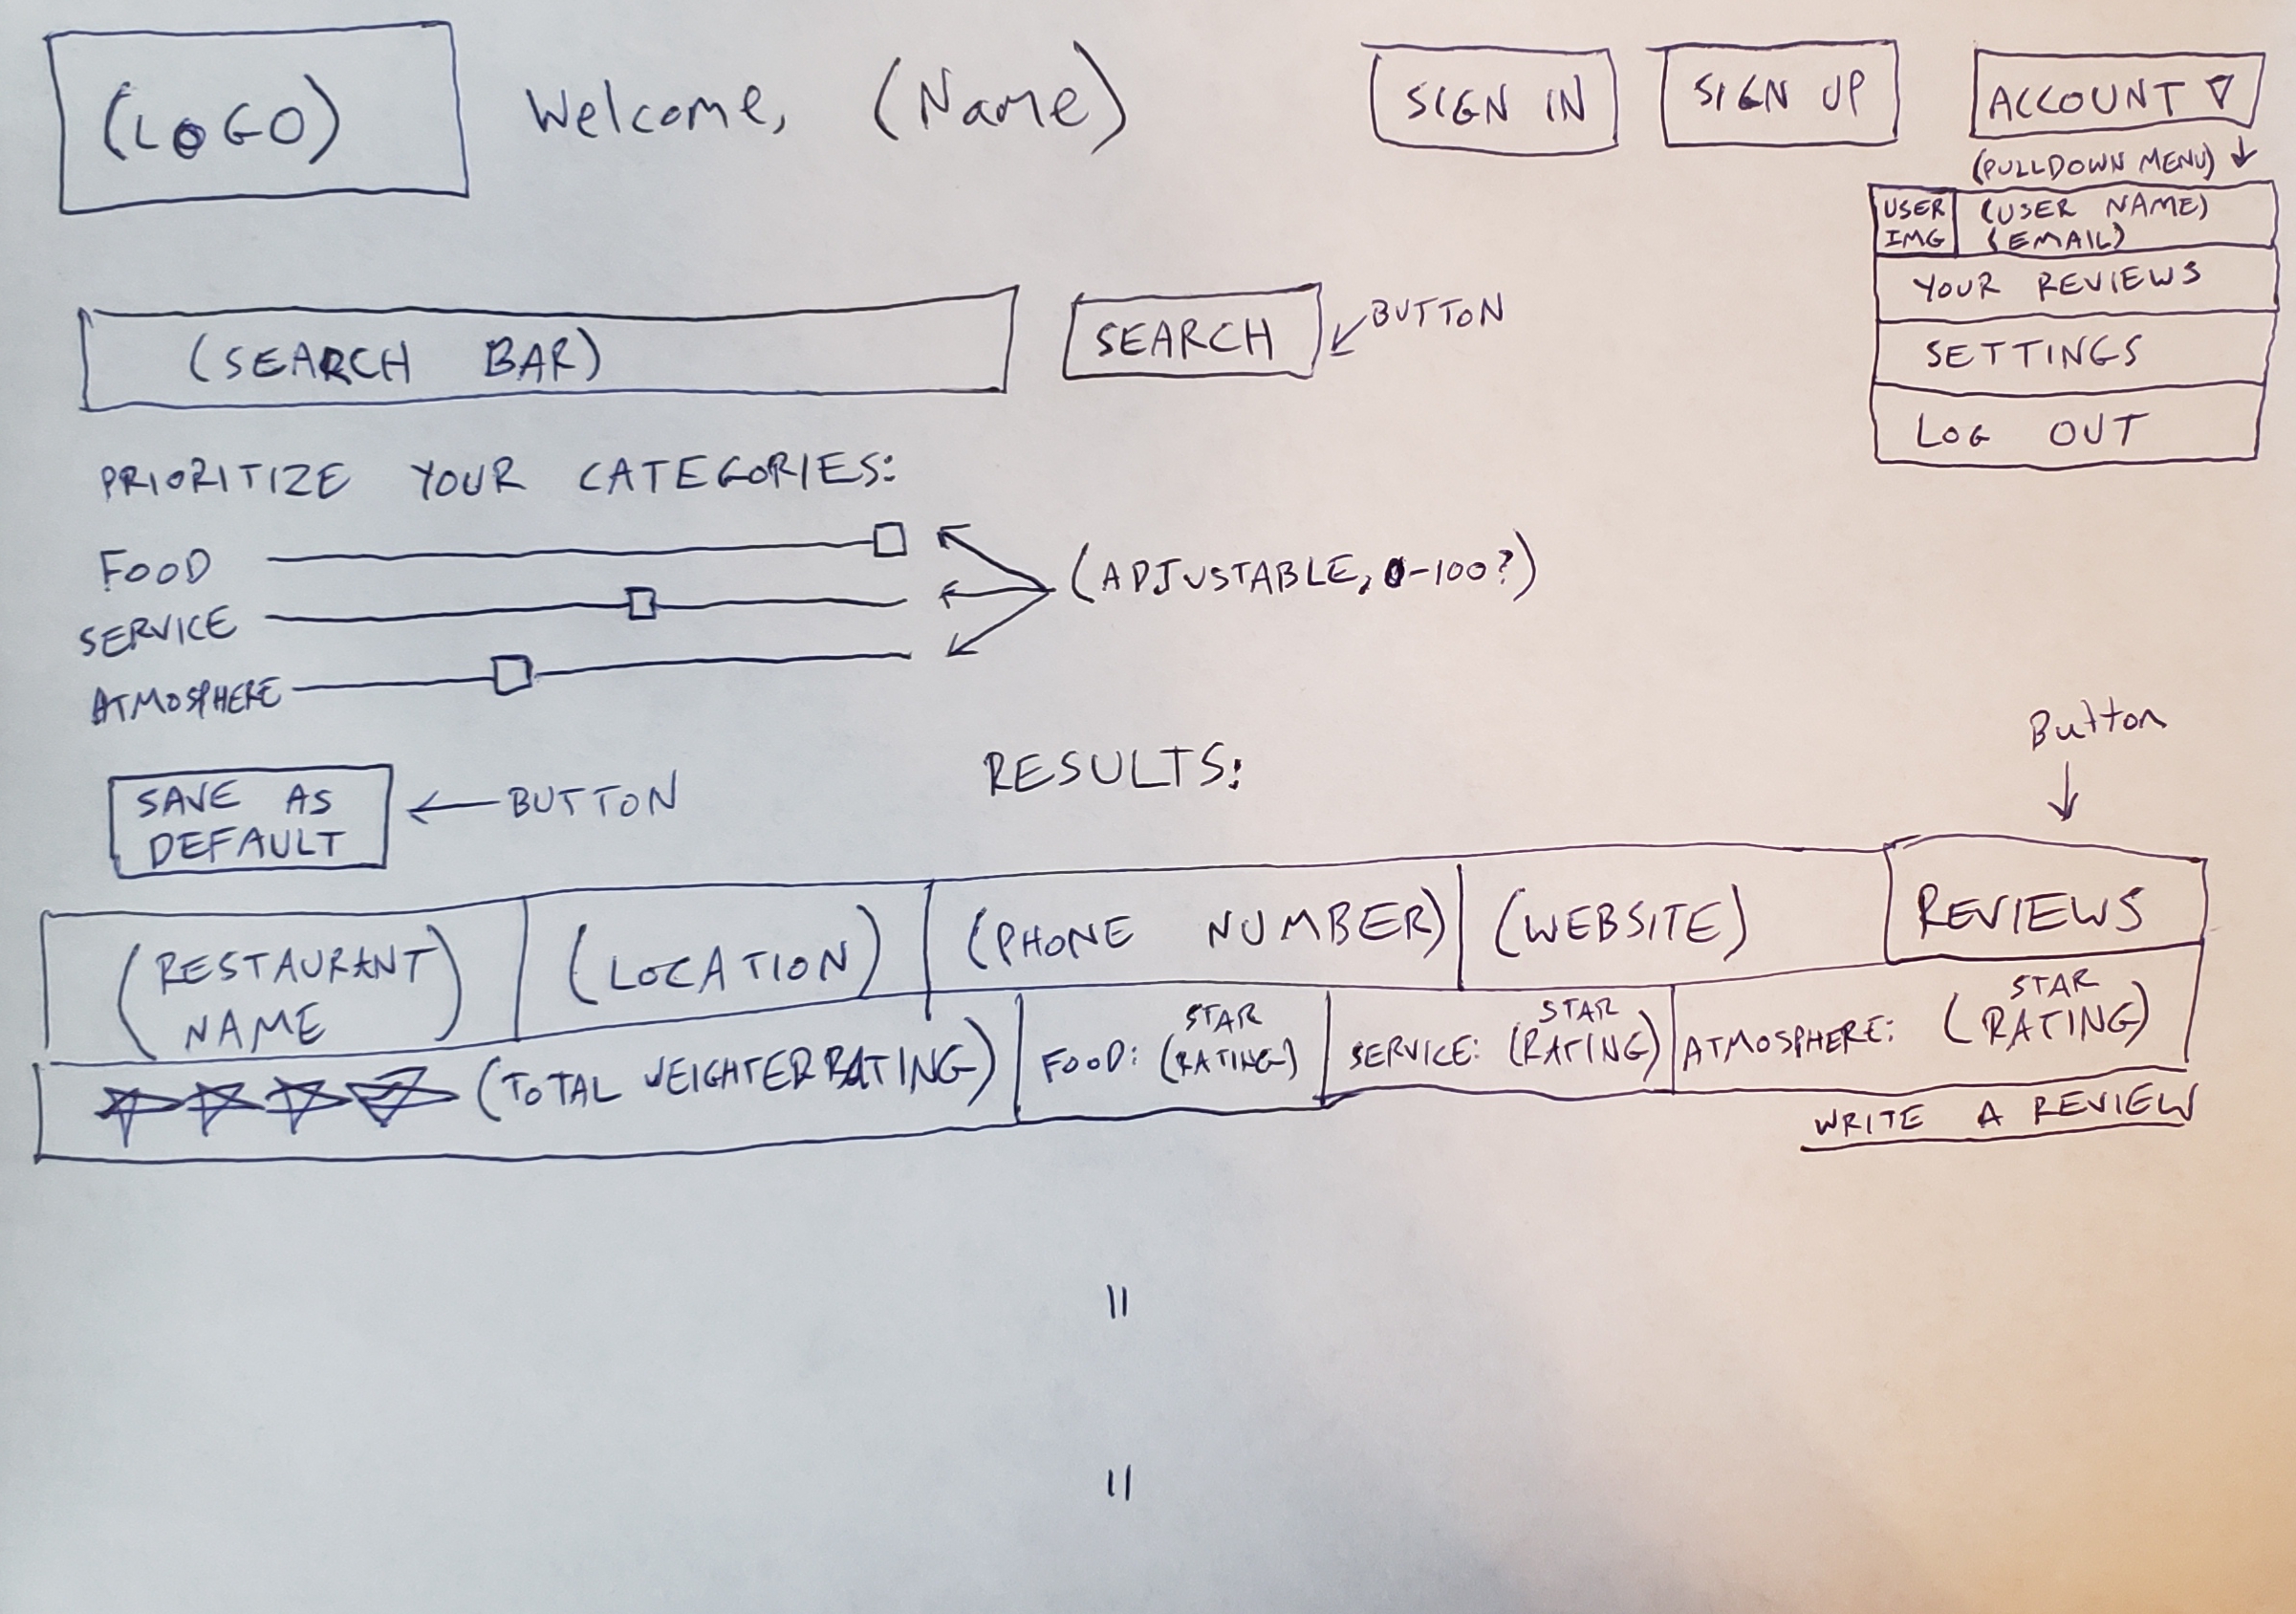 (LOGO)
Welcome, (Name)
SIGN IN
SIGN UP
ACCOUNT
(PULLDOWN MENU)
USER
IMG
(USER NAME)
(EMAIL)
YOUR REVIEWS
SETTINGS
LOG OUT
(SEARCH BAR)
SEARCH
BUTTON
PRIORITIZE YOUR CATEGORIES:
FOOD
SERVICE
ATMOSPHERE
(ADJUSTABLE, 0-100?)
SAVE AS
DEFAULT
BUTTON
RESULTS:
Button
(RESTAURANT
NAME)
(LOCATION)
(PHONE NUMBER)
(WEBSITE)
REVIEWS
(TOTAL WEIGHTER RATING)
FOOD: (STAR
RATING)
SERVICE: (STAR
RATING)
ATMOSPHERE: (STAR
RATING)
WRITE A REVIEW
11
11